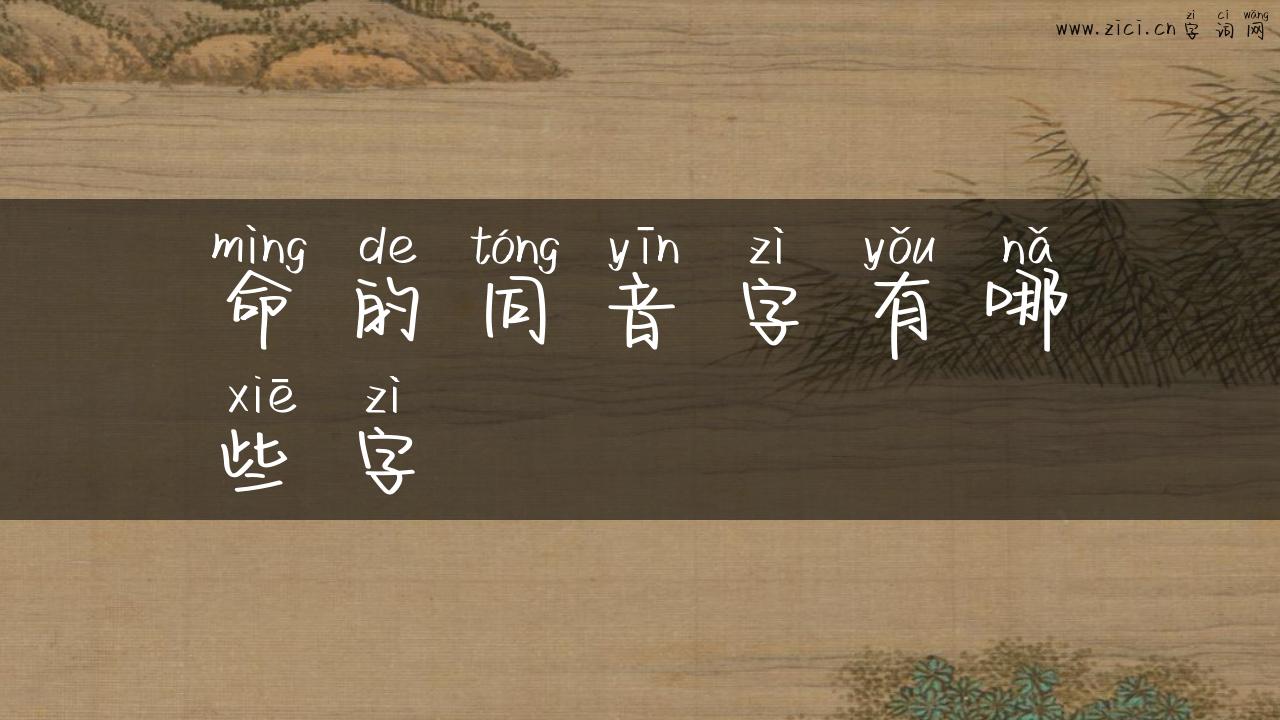 zì cí wǎng
www.zici.cn 字 词 网
mìng de tóng yīn zì yǒu nǎ
命 的 同 音 字 有 哪
xiē zì
些 字